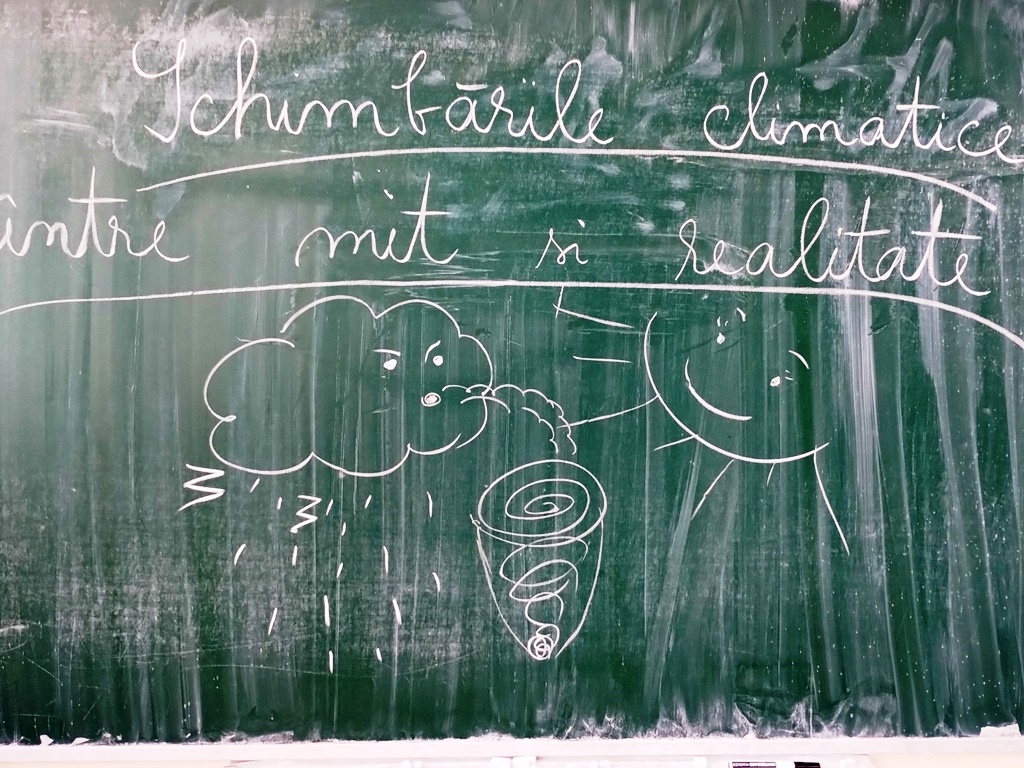 Schimbările climatice
între mit si realitate